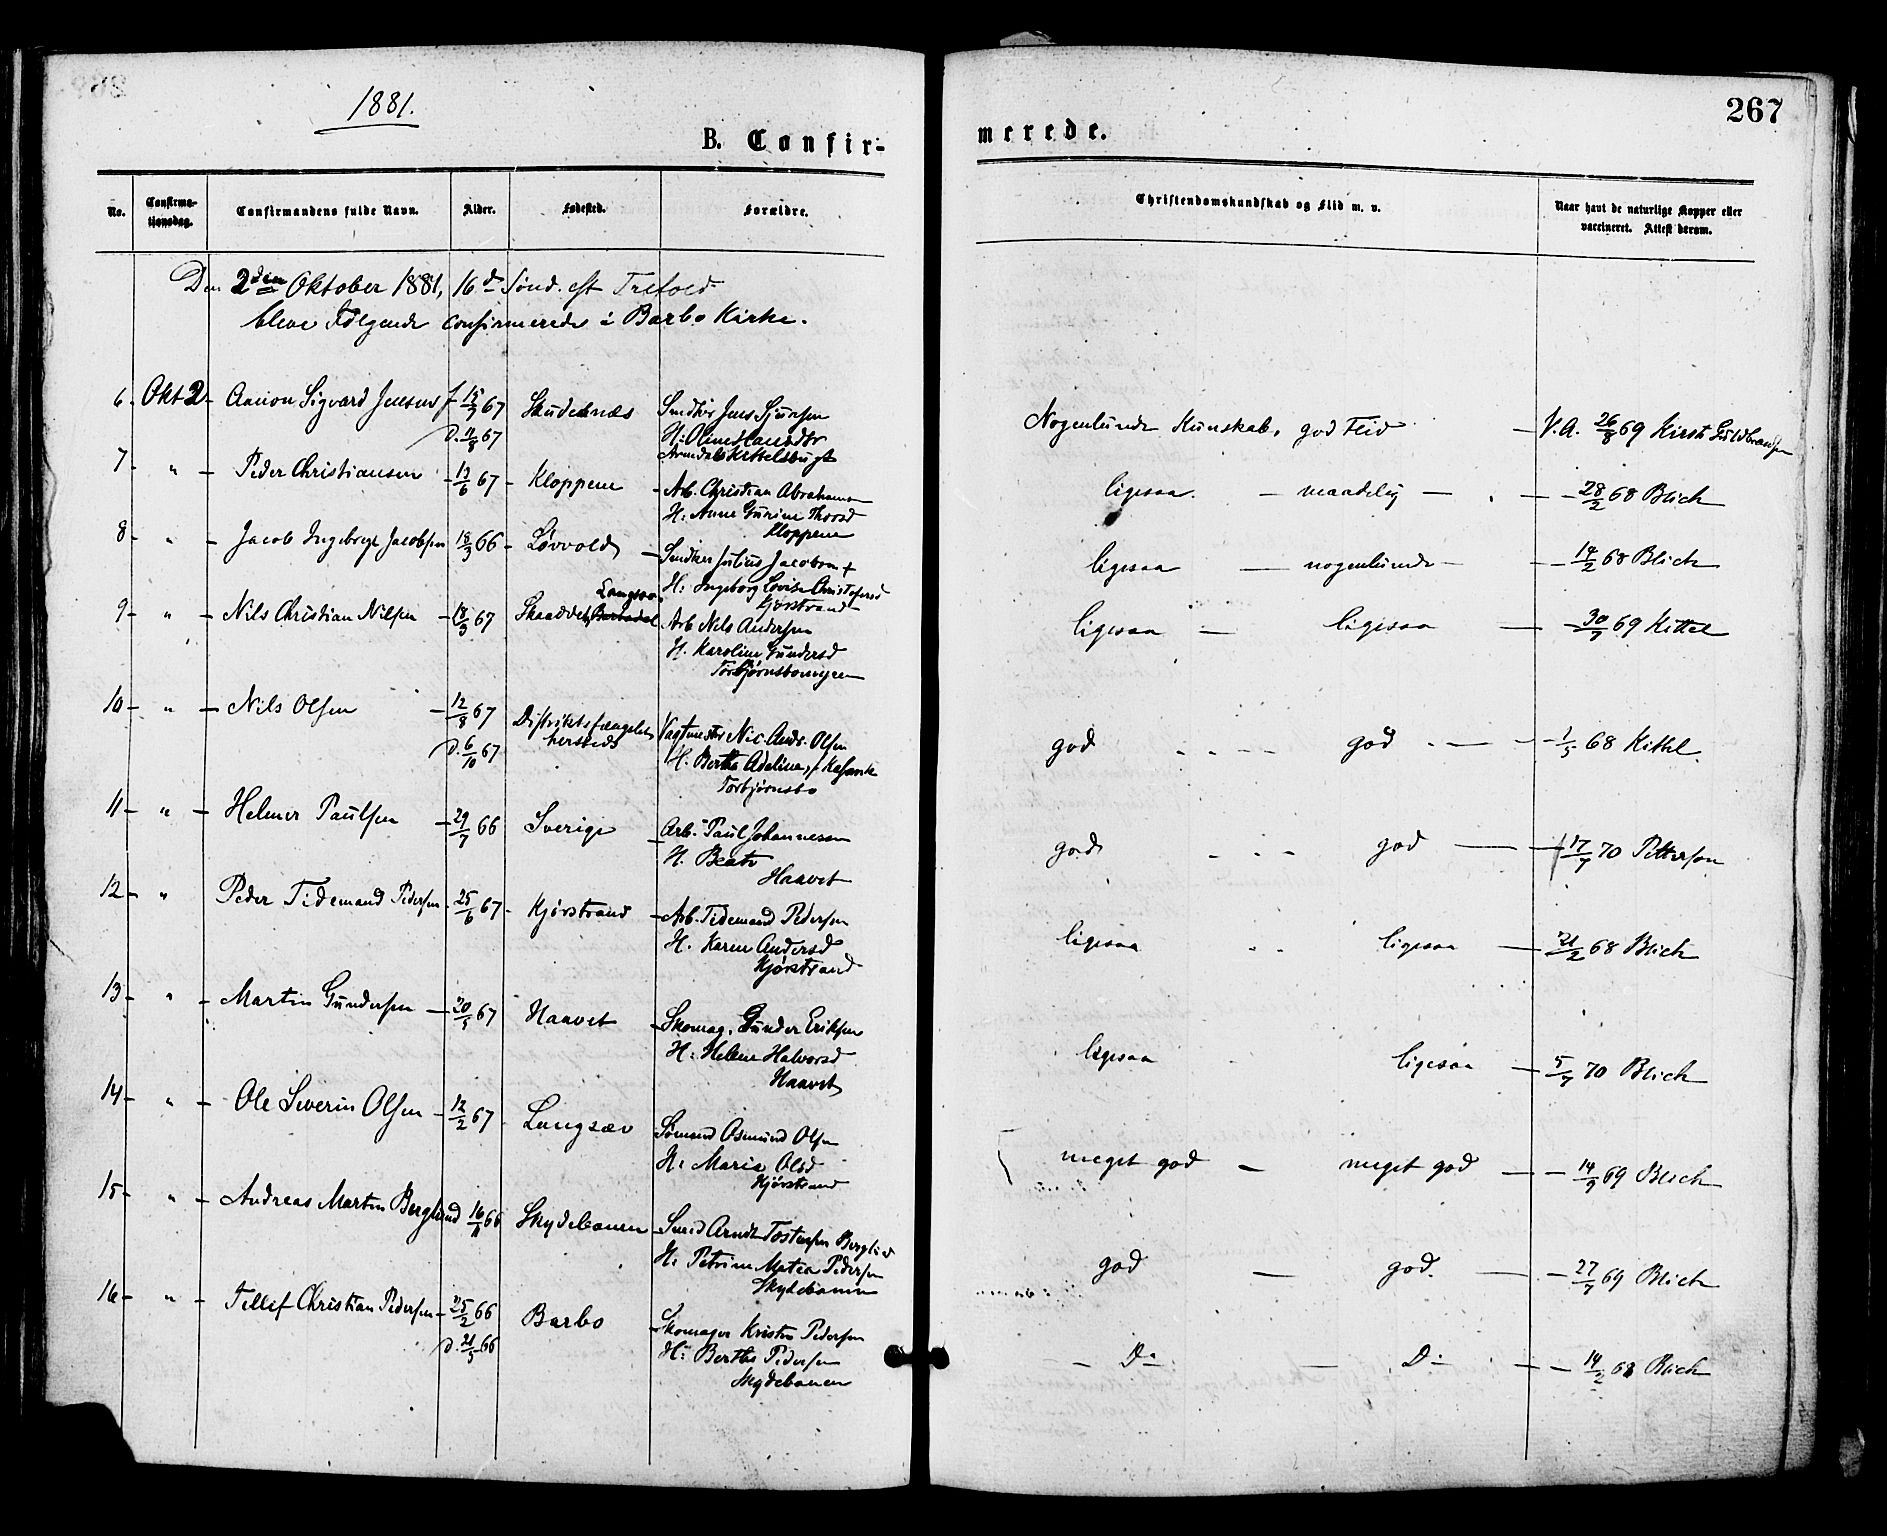 1881.
267
B. Confir-
merede.
No.
Confirma-
tionsdag.
Confirmandens fulde Navn.
Alder.
Fødested.
Forældre.
Christendomskundskab og Flid m. v.
Naar havt de naturlige Kopper eller
vaccineret. Attest derom.
Den 2den Oktober 1881, 16d Sønd. eft Trefold
bleve Følgende confirmerede i Barbo Kirke.
6. Okt 2 Aanon Sigvard Jensen f 15/7 67 Skudesnæs Smdkar Jens Sjursen Nogenlunde Kunskab, god Flid V.A. 26/8 69 Kirst Guldbrandsen
d. 11/8 67 H: Oline Hansdtr
Arendal Kittelsbugt
7 " Peder Christiansen 12/6 67 Kloppene Arb. Christian Abrahamsen ligesaa. maadelig 28/2 68 Blich
H: Anne Gurine Thorsd
Kloppene
8 " Jacob Ingebregt Jacobsen 18/3 66 Løvvold Smdker Julius Jacobsen + ligesaa nogenlunde 14/2 68 Blich
H: Ingeborg Lovise Christofersd
Kjørstrand
Langsæv
9 " Nils Christian Nilsen 18/3 67 Skaadvei Arb Nils Andersen ligesaa ligesaa 30/7 69 Kittel
H. Karoline Gundersd
Torbjørnsbomyren
10 " Nils Olsen 12/8 67 Distriktsfængslet Vagtmestr Nic. Andr. Olsen god god 1/5 68 Kittel.
d. 6/10 67 hersteds H. Berthe Adeline, f.
Torbjørnsbo
11 " Helmer Paulsen 29/7 66 Sverige Arb. Paul Johannesen god god 17/7 70 Pettersen
H. Beate
Haavet
12 " Peder Tidemand Pedersen 25/6 67 Kjørstrand Arb. Tidemand Pedersen ligesaa ligesaa 21/2 68 Blich
H. Karen Andersd
Kjørstrand
13 " Martin Gundersen 20/5 67 Haavet Skomag. Gunder Eriksen ligesaa ligesaa 5/7 70 Blich
H: Helene Halvorsd
Haavet
14 " Ole Severin Olsen 12/2 67 Langsæv Sømand Osmund Olsen meget god meget god 14/9 69 Blich
H: Maria Olsd
Kjørstrand
15 " Andreas Martin Berglund 16/11 66 Skydebanen Smed Arndt Tostensen Berglund god god. 27/7 69 Blich
H: Petrine Matea Pedersen
Skydebanen
16 " Tellef Christian Pedersen 25/2 66 Barbo Skomager Kristen Pedersen Do Do 14/2 68 Blich
d. 21/5 66 H: Berthe Pedersen
Skydebanen